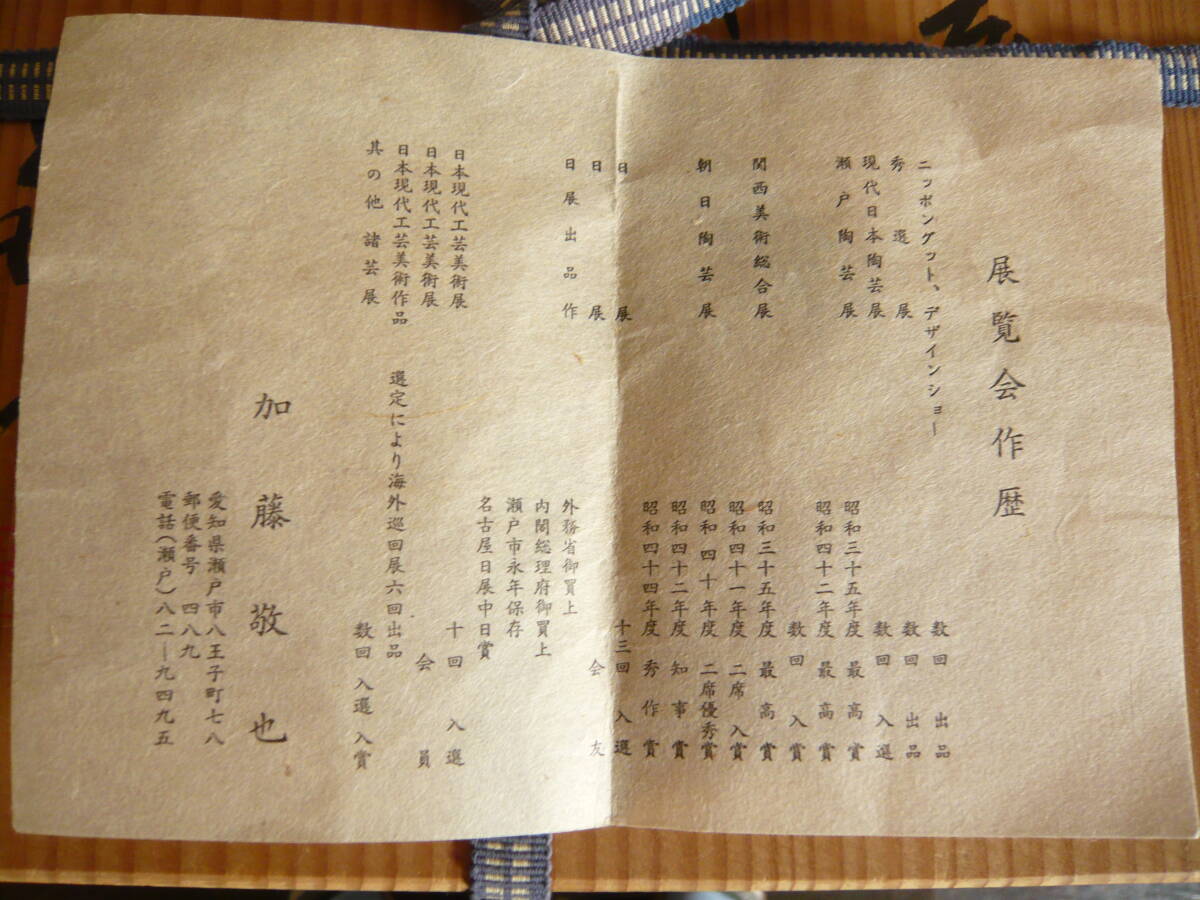 展覧会作歴
ニッポングット、デザインショー 数回 出品
秀選展 数回 出品
現代日本陶芸展 数回 入選
瀬戸陶芸展 昭和三十五年度 最高賞
昭和四十二年度 最高賞
数回 入賞
関西美術総合展 昭和三十五年度 最高賞
昭和四十一年度 二席 入賞
朝日陶芸展 昭和 四十年度 二席優秀賞
昭和四十二年度 知事賞
昭和四十四年度 秀作賞
日展 十三回 入選
日展 会友
日展出品作 外務省御買上
内閣総理府御買上
瀬戸市永年保存
名古屋日展中日賞
日本現代工芸美術展 十回 入選
日本現代工芸美術展 会員
日本現代工芸美術作品 選定により海外巡回展六回出品
其の他諸芸展 数回 入選 入賞
加藤敬也
愛知県瀬戸市八王子町七八
郵便番号 四八九
電話(瀬戸)八二―九四九五